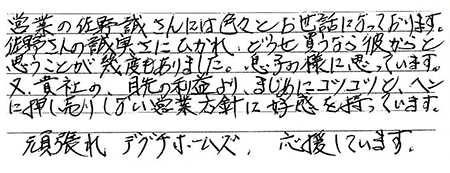 営業の佐野誠さんには色々とお世話になっております。
佐野さんの誠実さにひかれ、どうせ買うなら彼からと
思うことが幾度もありました。息子の様に思っています。
又、貴社の、目先の利益より、まじめにコツコツと、ヘン
に押し売りしない営業方針に好感を持っています。
頑張れ デグチホームズ、応援しています。